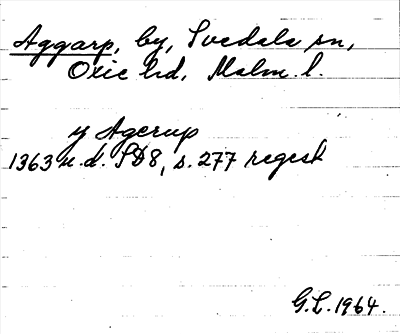 Aggarp, by, Svedala sn,
Oxie hd, Malm. l.
y Agerup
1363 u.d. SD8, s. 277 regest
G.L. 1964.